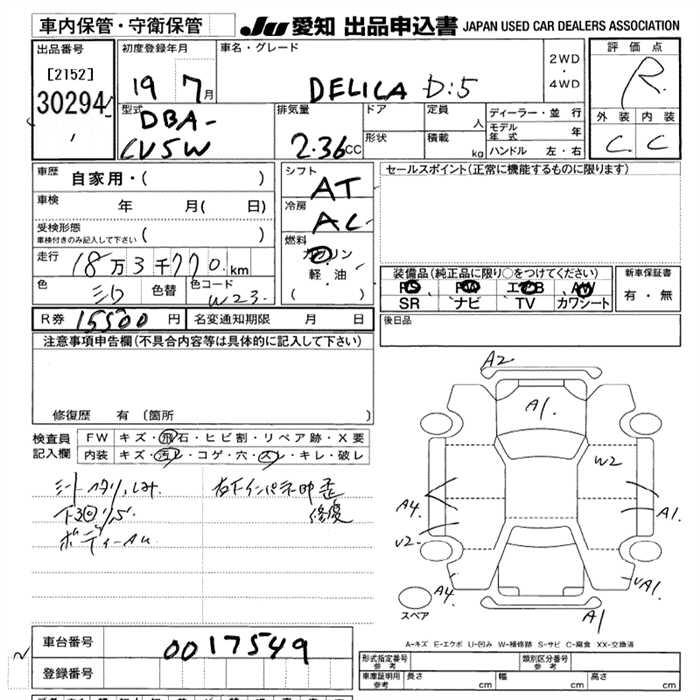 車内保管・守衛保管
JU 愛知 出品申込書 JAPAN USED CAR DEALERS ASSOCIATION
出品番号
[2152]
30294
初度登録年月
19 7月
車名・グレード
DELICA D:5
2WD
・
4WD
評価点
R
外装 内装
C C
型式
DBA-
CV5W
排気量
2.36cc
ドア
形状
定員
人
積載
kg
ディーラー・並行
モデル年式 年
ハンドル 左・右
車歴
自家用・( )
車検
年 月( 日)
受検形態
車検付きのみ記入して下さい ( )
走行
18万3千770km
色
色替
色コード
W23.
シフト
AT
冷房
AC
燃料
ガソリン
軽・油
( )
セールスポイント(正常に機能するものに限ります)
装備品(純正品に限り○をつけてください)
PS PW エアB AW
SR ナビ TV カワシート
新車保証書
有・無
R券 15500円
名変通知期限 月 日
後日品
注意事項申告欄(不具合内容等は具体的に記入して下さい)
修復歴 有 〔箇所 〕
検査員記入欄
FW キズ・飛石・ヒビ割・リペア跡・X要
内装 キズ・汚レ・コゲ・穴・スレ・キレ・破レ
修復
A2
A1.
W2
A4.
A1.
V2
A4.
A1.
A1
スペア
A-キズ E-エクボ U-凹み W-補修跡 S-サビ C-腐食 XX-交換済
車台番号
0017549
登録番号
形式指定番号
参考
類別区分番号
参考
車庫証明用
参考
長さ cm
幅 cm
高さ cm